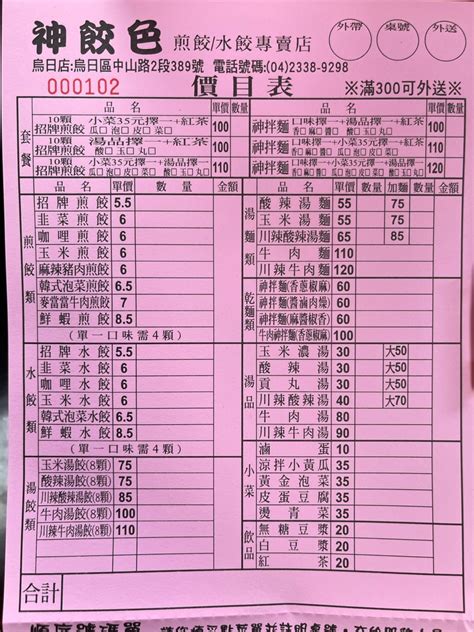 神餃色 煎餃/水餃專賣店 外帶 桌號 外送
烏日店:烏日區中山路2段389號 電話號碼:(04)2338-9298
000102 價目表 ※滿300可外送※
品名 單價 數量 品名 單價 數量
套餐
10顆招牌煎餃 小菜35元擇一+紅茶 瓜□ 泡□ 皮□ 菜□ 100
神拌麵 口味擇一+湯品擇一+紅茶 香□ 麻□ 醬□ 酸□ 玉□ 丸□ 100
10顆招牌煎餃 湯品擇一+紅茶 酸□ 玉□ 丸□ 100
神拌麵 口味擇一+小菜35元擇一+紅茶 100
10顆招牌煎餃 小菜35元擇一+湯品擇一 110
神拌麵 110
品名 單價 數量 金額
煎餃類
招牌煎餃 5.5
韭菜煎餃 6
咖哩煎餃 6
玉米煎餃 6
麻辣豬肉煎餃 6
韓式泡菜煎餃 6.5
麥當當牛肉煎餃 7
鮮蝦煎餃 8.5
(單一口味需4顆)
水餃類
招牌水餃 5.5
韭菜水餃 6
咖哩水餃 6
玉米水餃 6
韓式泡菜水餃 6.5
鮮蝦水餃 8.5
(單一口味需4顆)
湯餃類
玉米湯餃(8顆) 75
酸辣湯餃(8顆) 75
川辣酸辣湯餃(8顆) 85
牛肉湯餃(8顆) 100
川辣牛肉湯餃(8顆) 110
合計
品名 單價 數量 加麵 數量 金額
湯麵類
酸辣湯麵 55 75
玉米湯麵 55 75
川辣酸辣湯麵 65 85
牛肉麵 110
川辣牛肉麵 120
乾麵類
神拌麵(香蔥椒麻) 60
神拌麵(醬滷肉燥) 60
神拌麵(麻醬椒香) 60
川辣香蔥牛肉拌麵 100
湯品
玉米濃湯 30 大50
酸辣湯 30 大50
貢丸湯 30 大50
川辣酸辣湯 40 大70
牛肉湯 80
川辣牛肉湯 90
小菜
滷蛋 10
涼拌小黃瓜 35
黃金泡菜 35
皮蛋豆腐 35
燙青菜 35
飲品
無糖豆漿 20
白豆漿 20
紅茶 20